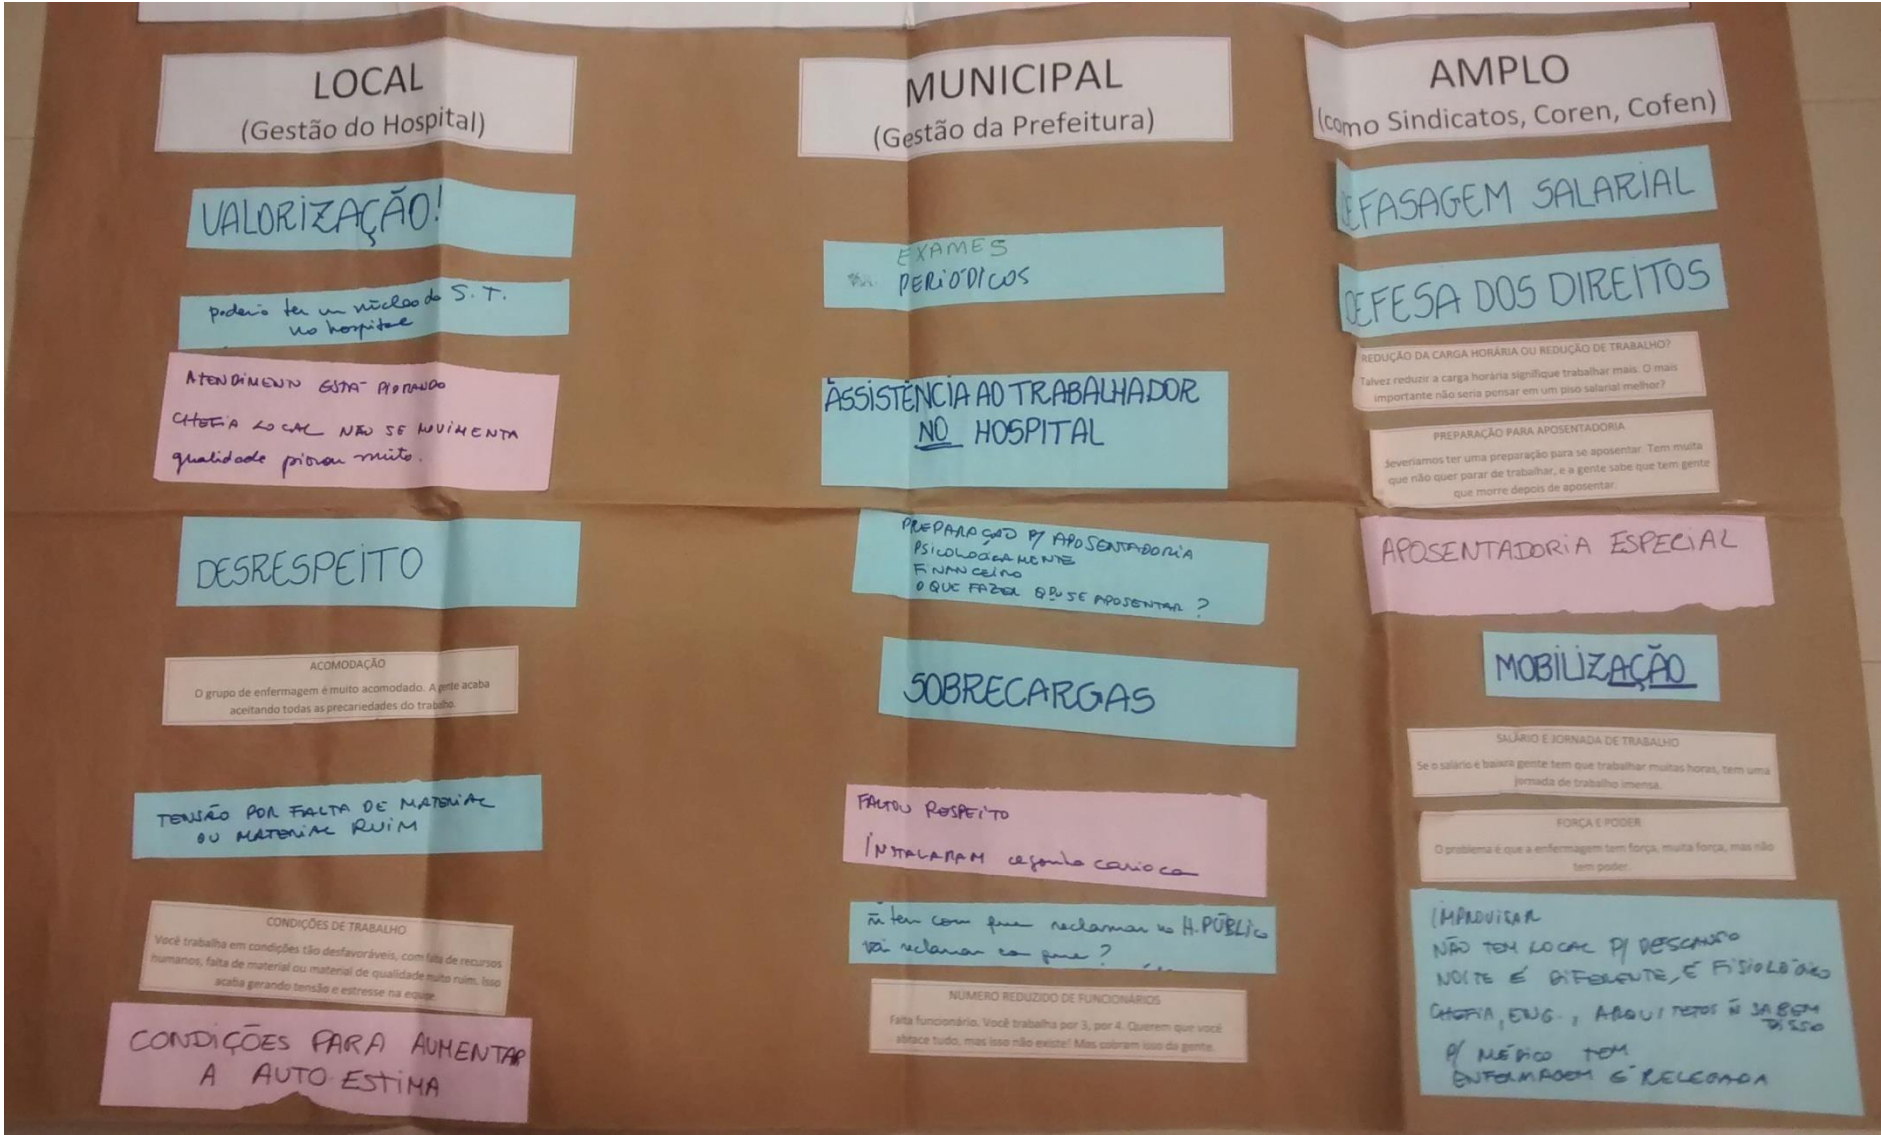 LOCAL
(Gestão do Hospital)
VALORIZAÇÃO!
poderia ter um núcleo de S. T.
no hospital
ATENDIMENTO ESTÁ PIORANDO
CHEFIA LOCAL NÃO SE MOVIMENTA
qualidade piorou muito.
DESRESPEITO
ACOMODAÇÃO
O grupo de enfermagem é muito acomodado. A gente acaba
aceitando todas as precariedades do trabalho.
TENSÃO POR FALTA DE MATERIAL
OU MATERIAL RUIM
CONDIÇÕES DE TRABALHO
Você trabalha em condições tão desfavoráveis, com falta de recursos
humanos, falta de material ou material de qualidade muito ruim. Isso
acaba gerando tensão e estresse na equipe.
CONDIÇÕES PARA AUMENTAR
A AUTO ESTIMA
MUNICIPAL
(Gestão da Prefeitura)
EXAMES
PERIÓDICOS
ASSISTÊNCIA AO TRABALHADOR
NO HOSPITAL
PREPARAÇÃO P/ APOSENTADORIA
PSICOLOGICAMENTE
FINANCEIRO
O QUE FAZER QDO SE APOSENTAR ?
SOBRECARGAS
FALTOU RESPEITO
INSTALARAM cegonha carioca
ñ tem com quem reclamar no H. PÚBLICO
vai reclamar com quem ?
NÚMERO REDUZIDO DE FUNCIONÁRIOS
Falta funcionário. Você trabalha por 3, por 4. Querem que você
abrace tudo, mas isso não existe! Mas cobram isso da gente.
AMPLO
(como Sindicatos, Coren, Cofen)
EFASAGEM SALARIAL
DEFESA DOS DIREITOS
REDUÇÃO DA CARGA HORÁRIA OU REDUÇÃO DE TRABALHO?
Talvez reduzir a carga horária signifique trabalhar mais. O mais
importante não seria pensar em um piso salarial melhor?
PREPARAÇÃO PARA APOSENTADORIA
deveríamos ter uma preparação para se aposentar. Tem muita
que não quer parar de trabalhar, e a gente sabe que tem gente
que morre depois de aposentar.
APOSENTADORIA ESPECIAL
MOBILIZAÇÃO
SALÁRIO E JORNADA DE TRABALHO
Se o salário é baixo a gente tem que trabalhar muitas horas, tem uma
jornada de trabalho imensa.
FORÇA E PODER
O problema é que a enfermagem tem força, muita força, mas não
tem poder.
IMPROVISAR
NÃO TEM LOCAL P/ DESCANSO
NOITE É DIFERENTE, É FISIOLÓGICO
CHEFIA, ENG., ARQUITETOS Ñ SABEM
DISSO
P/ MÉDICO TEM
ENFERMAGEM É RELEGADA